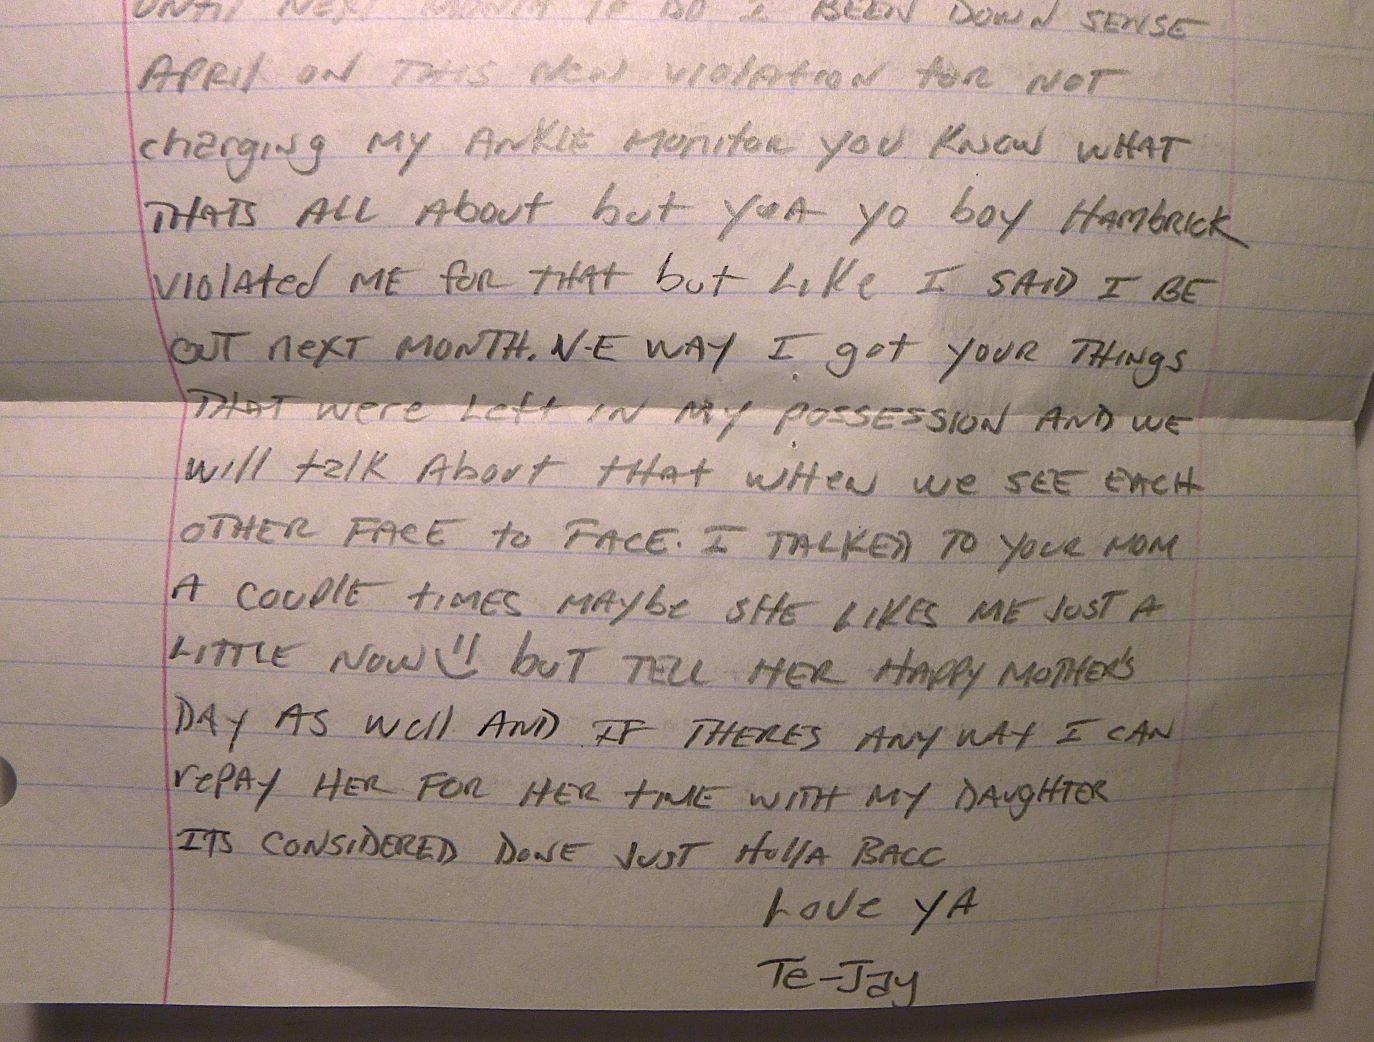 UNTIL NEXT MONTH TO DO I BEEN DOWN SENSE
APRIL ON THIS NEW VIOLATION FOR NOT
charging MY ANKLE MONITOR YOU KNOW WHAT
THATS ALL About but YEA YO boy HAMBRICK
VIOLATED ME for THAT but LIKE I SAID I BE
OUT NEXT MONTH. N-E WAY I got YOUR THINGS
THAT were Left IN MY POSSESSION AND WE
will talk About that WHEN we SEE EACH
OTHER FACE to FACE. I TALKED TO YOUR MOM
A COUPLE TIMES MAYBE SHE LIKES ME JUST A
LITTLE NOW but TELL HER HAPPY MOTHER'S
DAY AS well AND IF THERES ANY WAY I CAN
repAY HER FOR HER TIME WITH MY DAUGHTER
ITS CONSIDERED DONE JUST HollA BACC
Love YA
Te-Jay